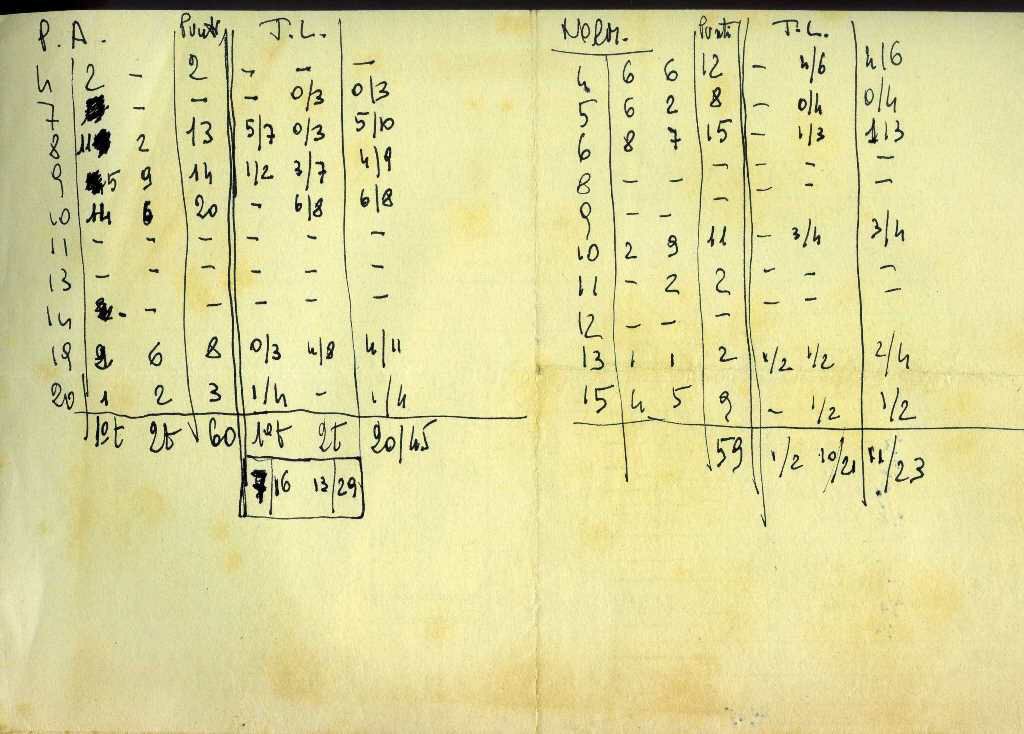 P. A. Punti T. L.
4 2 - 2 - - -
7 - - - 0/3 0/3
8 11 2 13 5/7 0/3 5/10
9 5 9 14 1/2 3/7 4/9
10 14 6 20 - 6/8 6/8
11 - - - - - -
13 - - - - - -
14 - - - - - -
19 2 6 8 0/3 4/8 4/11
20 1 2 3 1/4 - 1/4
1ºt 2t 60 1ºt 2t 20/45
7/16 13/29
Punti T. L.
4 6 6 12 - 4/6 4/6
5 6 2 8 - 0/4 0/4
6 8 7 15 - 1/3 1/3
8 - - - - - -
9 - - - - - -
10 2 9 11 - 3/4 3/4
11 - 2 2 - - -
12 - - - - - -
13 1 1 2 1/2 1/2 2/4
15 4 5 9 - 1/2 1/2
59 1/2 10/21 11/23